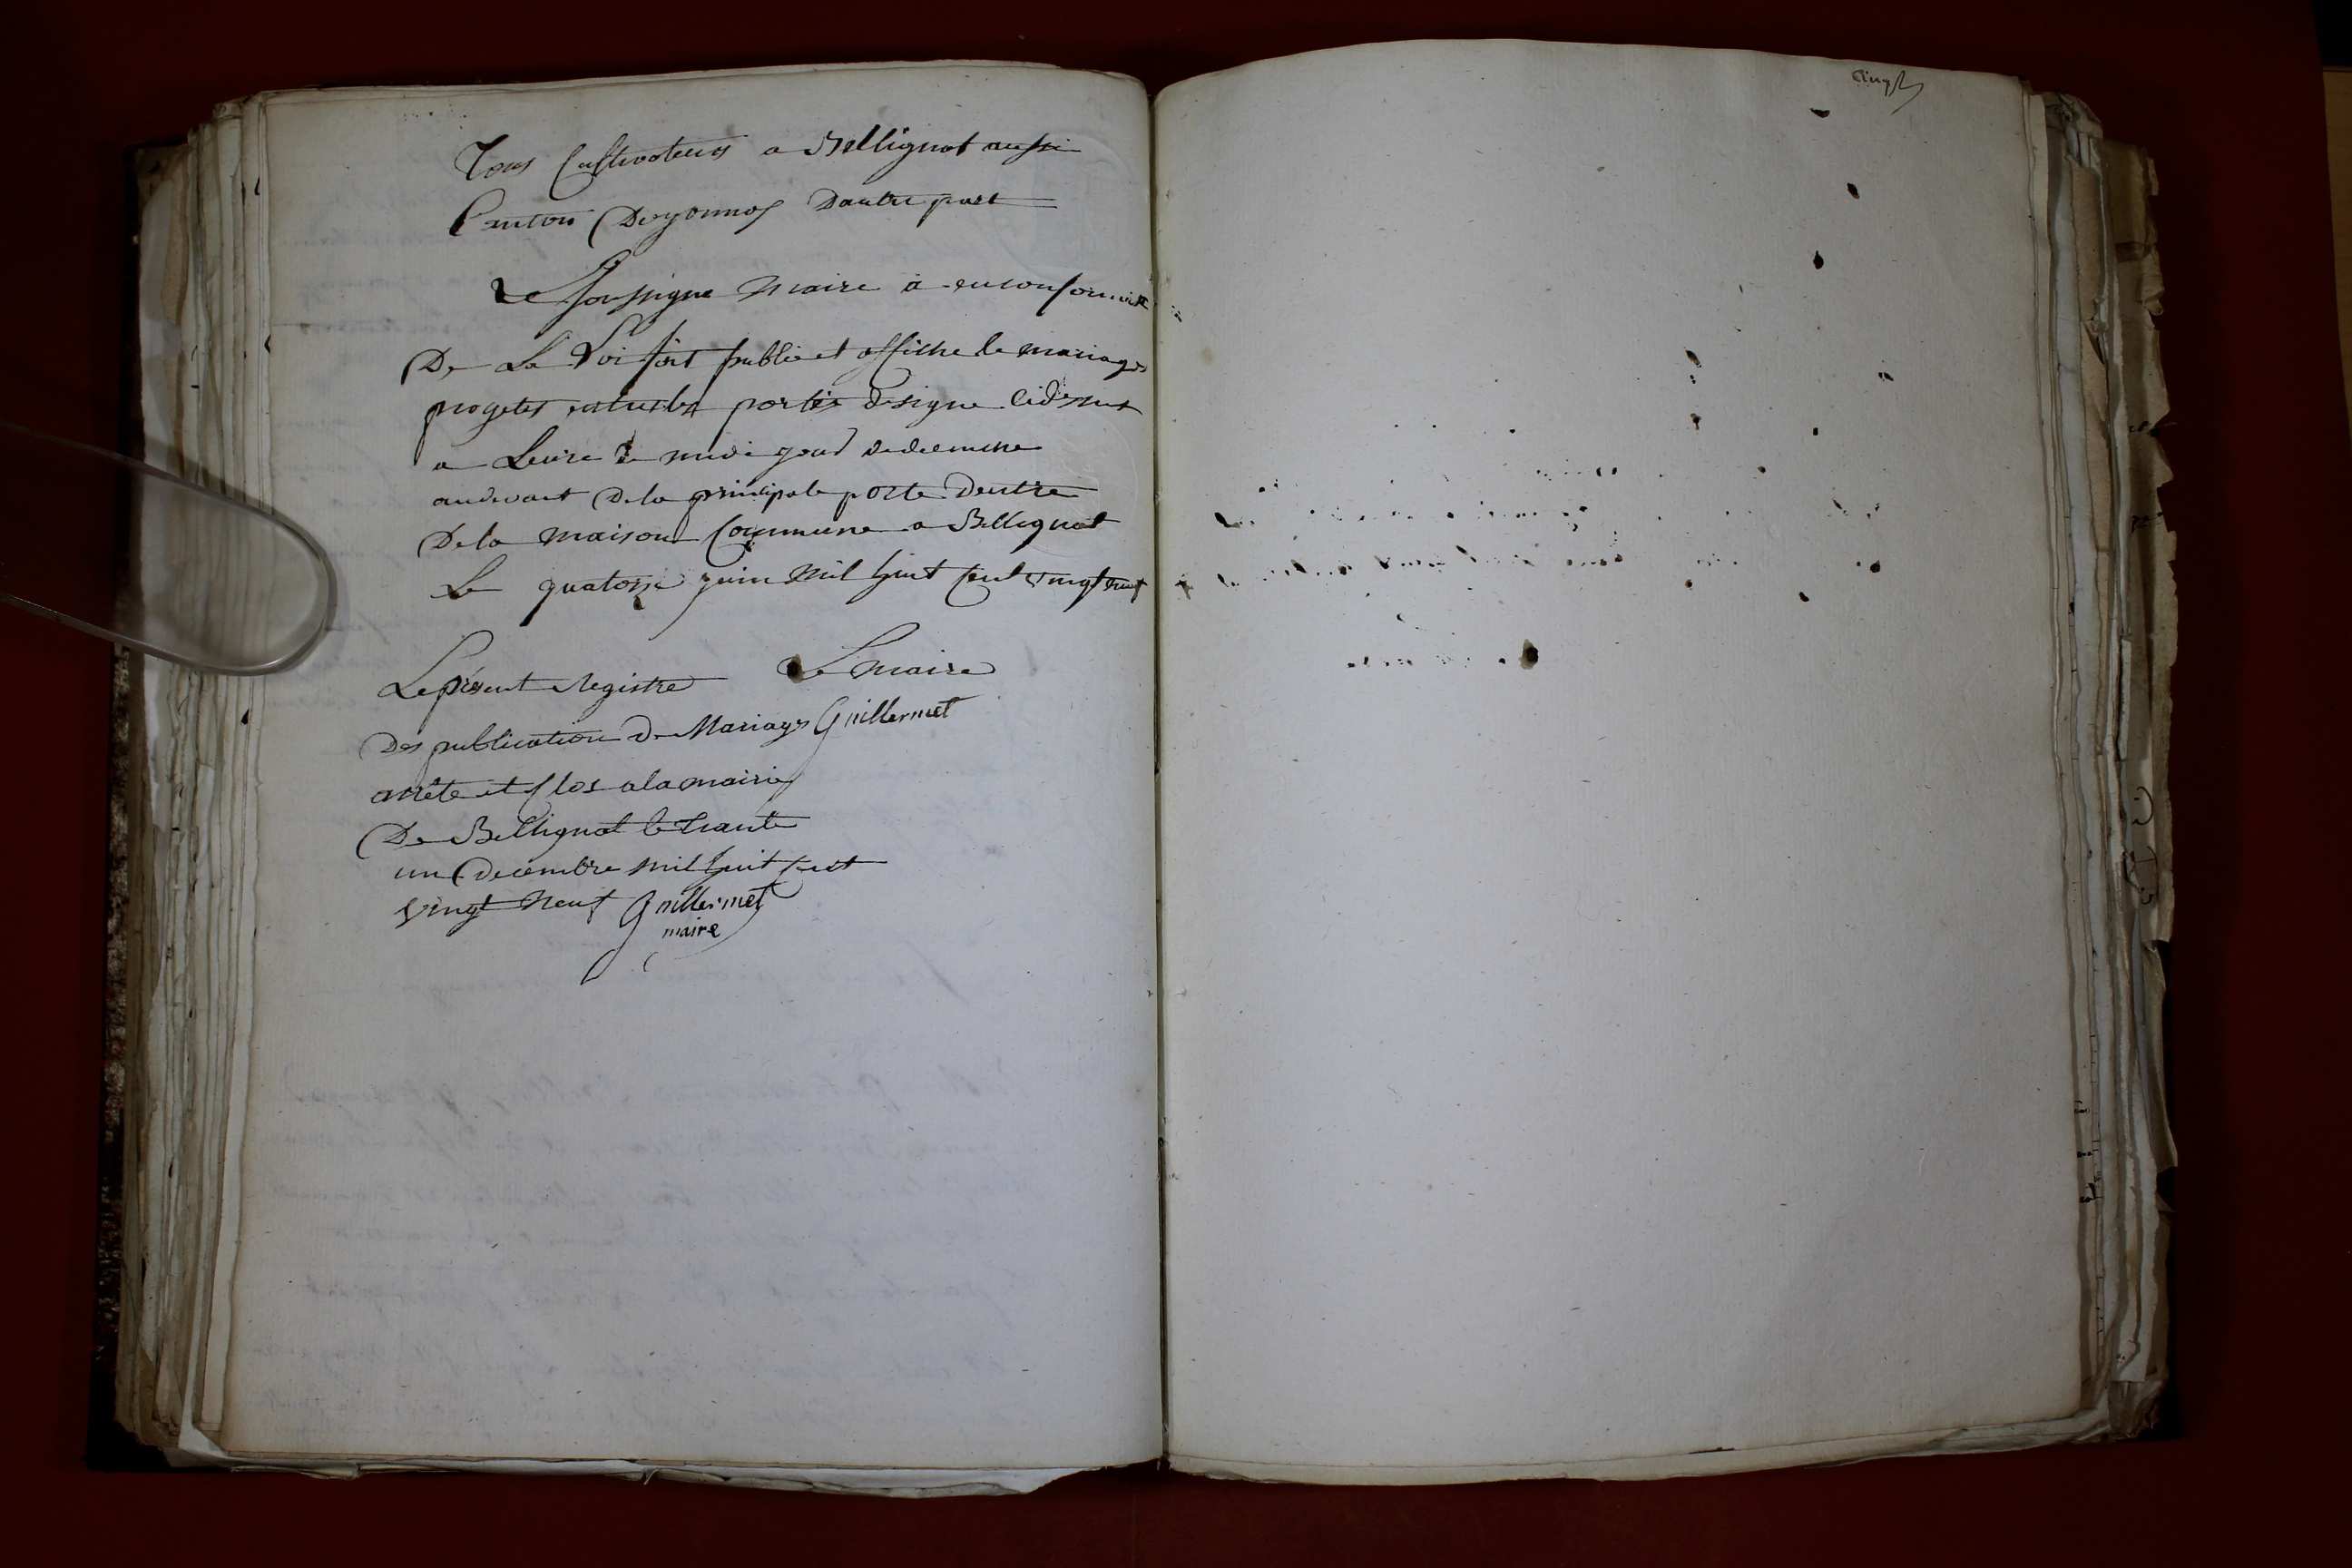 Tous Cultivateurs a Bellignat aussi
Canton Doyonnax Dautre part
Le soussigne maire a en conformite
De La Loi fait publié et affiche le mariages
progetes entre les partie designe cidessus
a Leure de midi jour de dimenche
audevant De la principale porte Dentre
De la maison Commune a Bellignat
Le quatorze juin mil huit cent vingt neuf
Le maire
Guillermet
Le présent Registre
Des publication De Mariages
arrêté et Clos a la mairie
De Bellignat le trante
un Decembre mil huit cent
vingt neuf Guillermet
maire